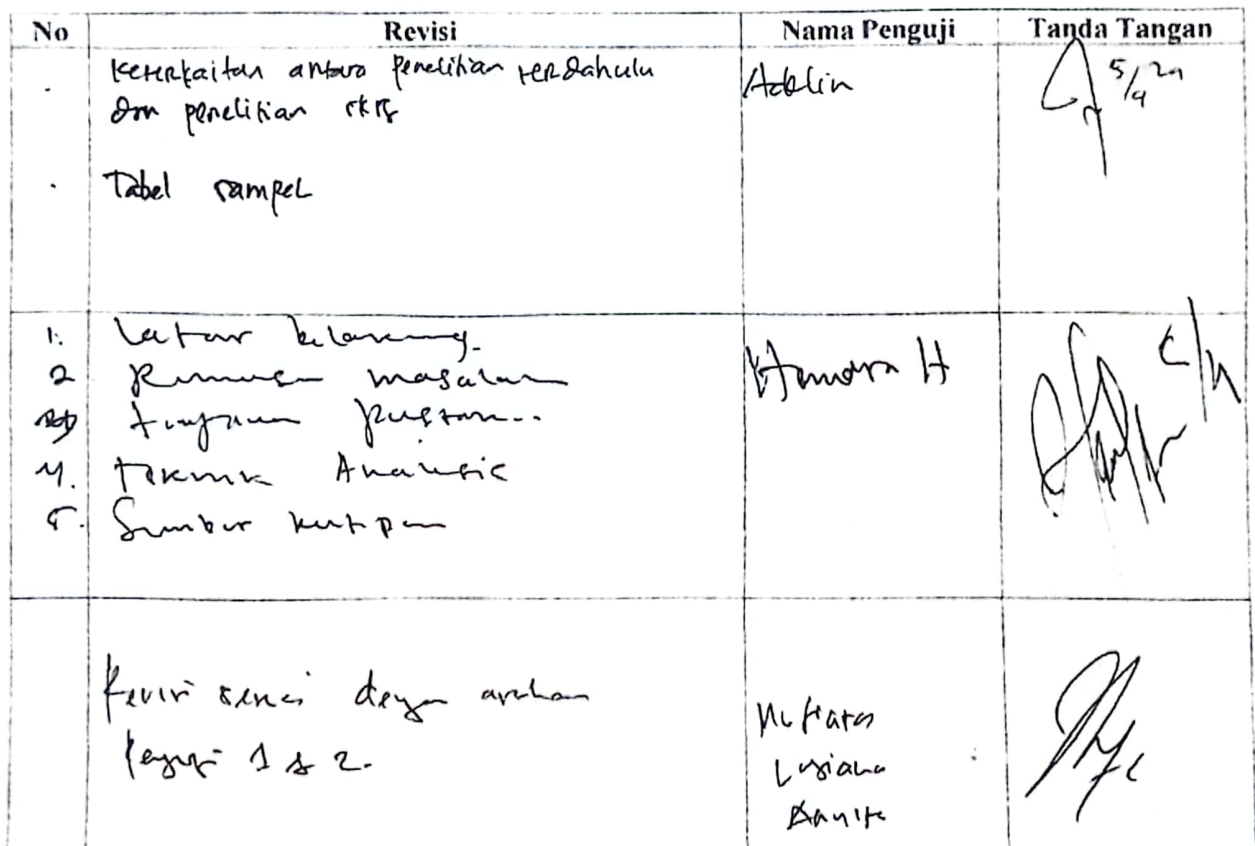 No Revisi Nama Penguji Tanda Tangan
Keterkaitan antara penelitian terdahulu Adelin 5/9
dan penelitian
Tabel sampel
1. Latar belakang.
2 Rumusan masalah H
tinjauan pustaka
4. Teknik Analisis
5. Sumber kutipan
Revisi sesuai dengan arahan
penguji 1 & 2. Mutiara
Lusiana